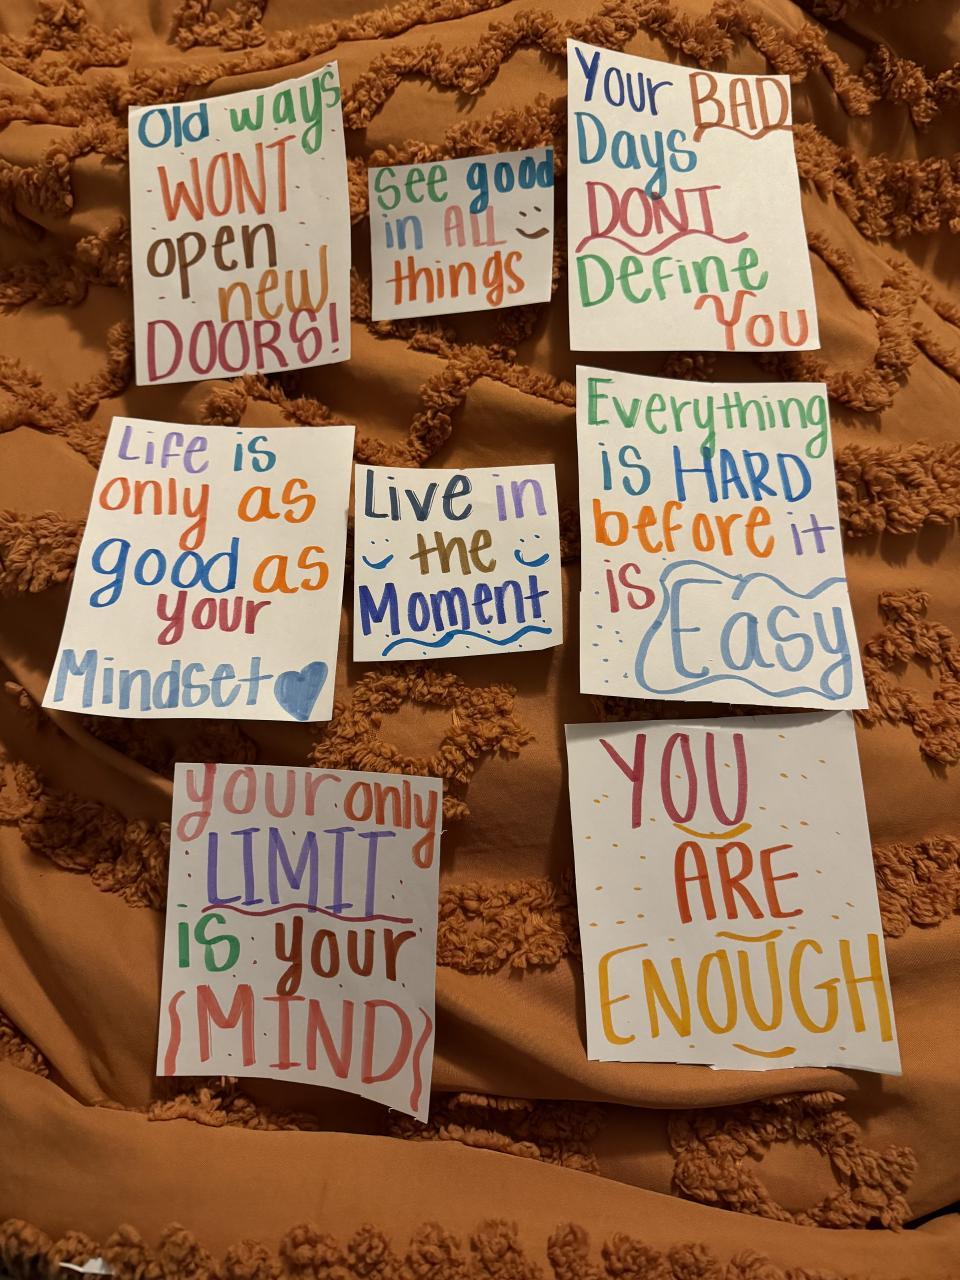 Old ways
WONT
open
new
DOORS!
See good
in ALL
things
Your BAD
Days
DONT
Define
You
Life is
only as
good as
your
Mindset
Live in
the
Moment
Everything
is HARD
before it
is Easy
your only
LIMIT
is your
MIND
YOU
ARE
ENOUGH